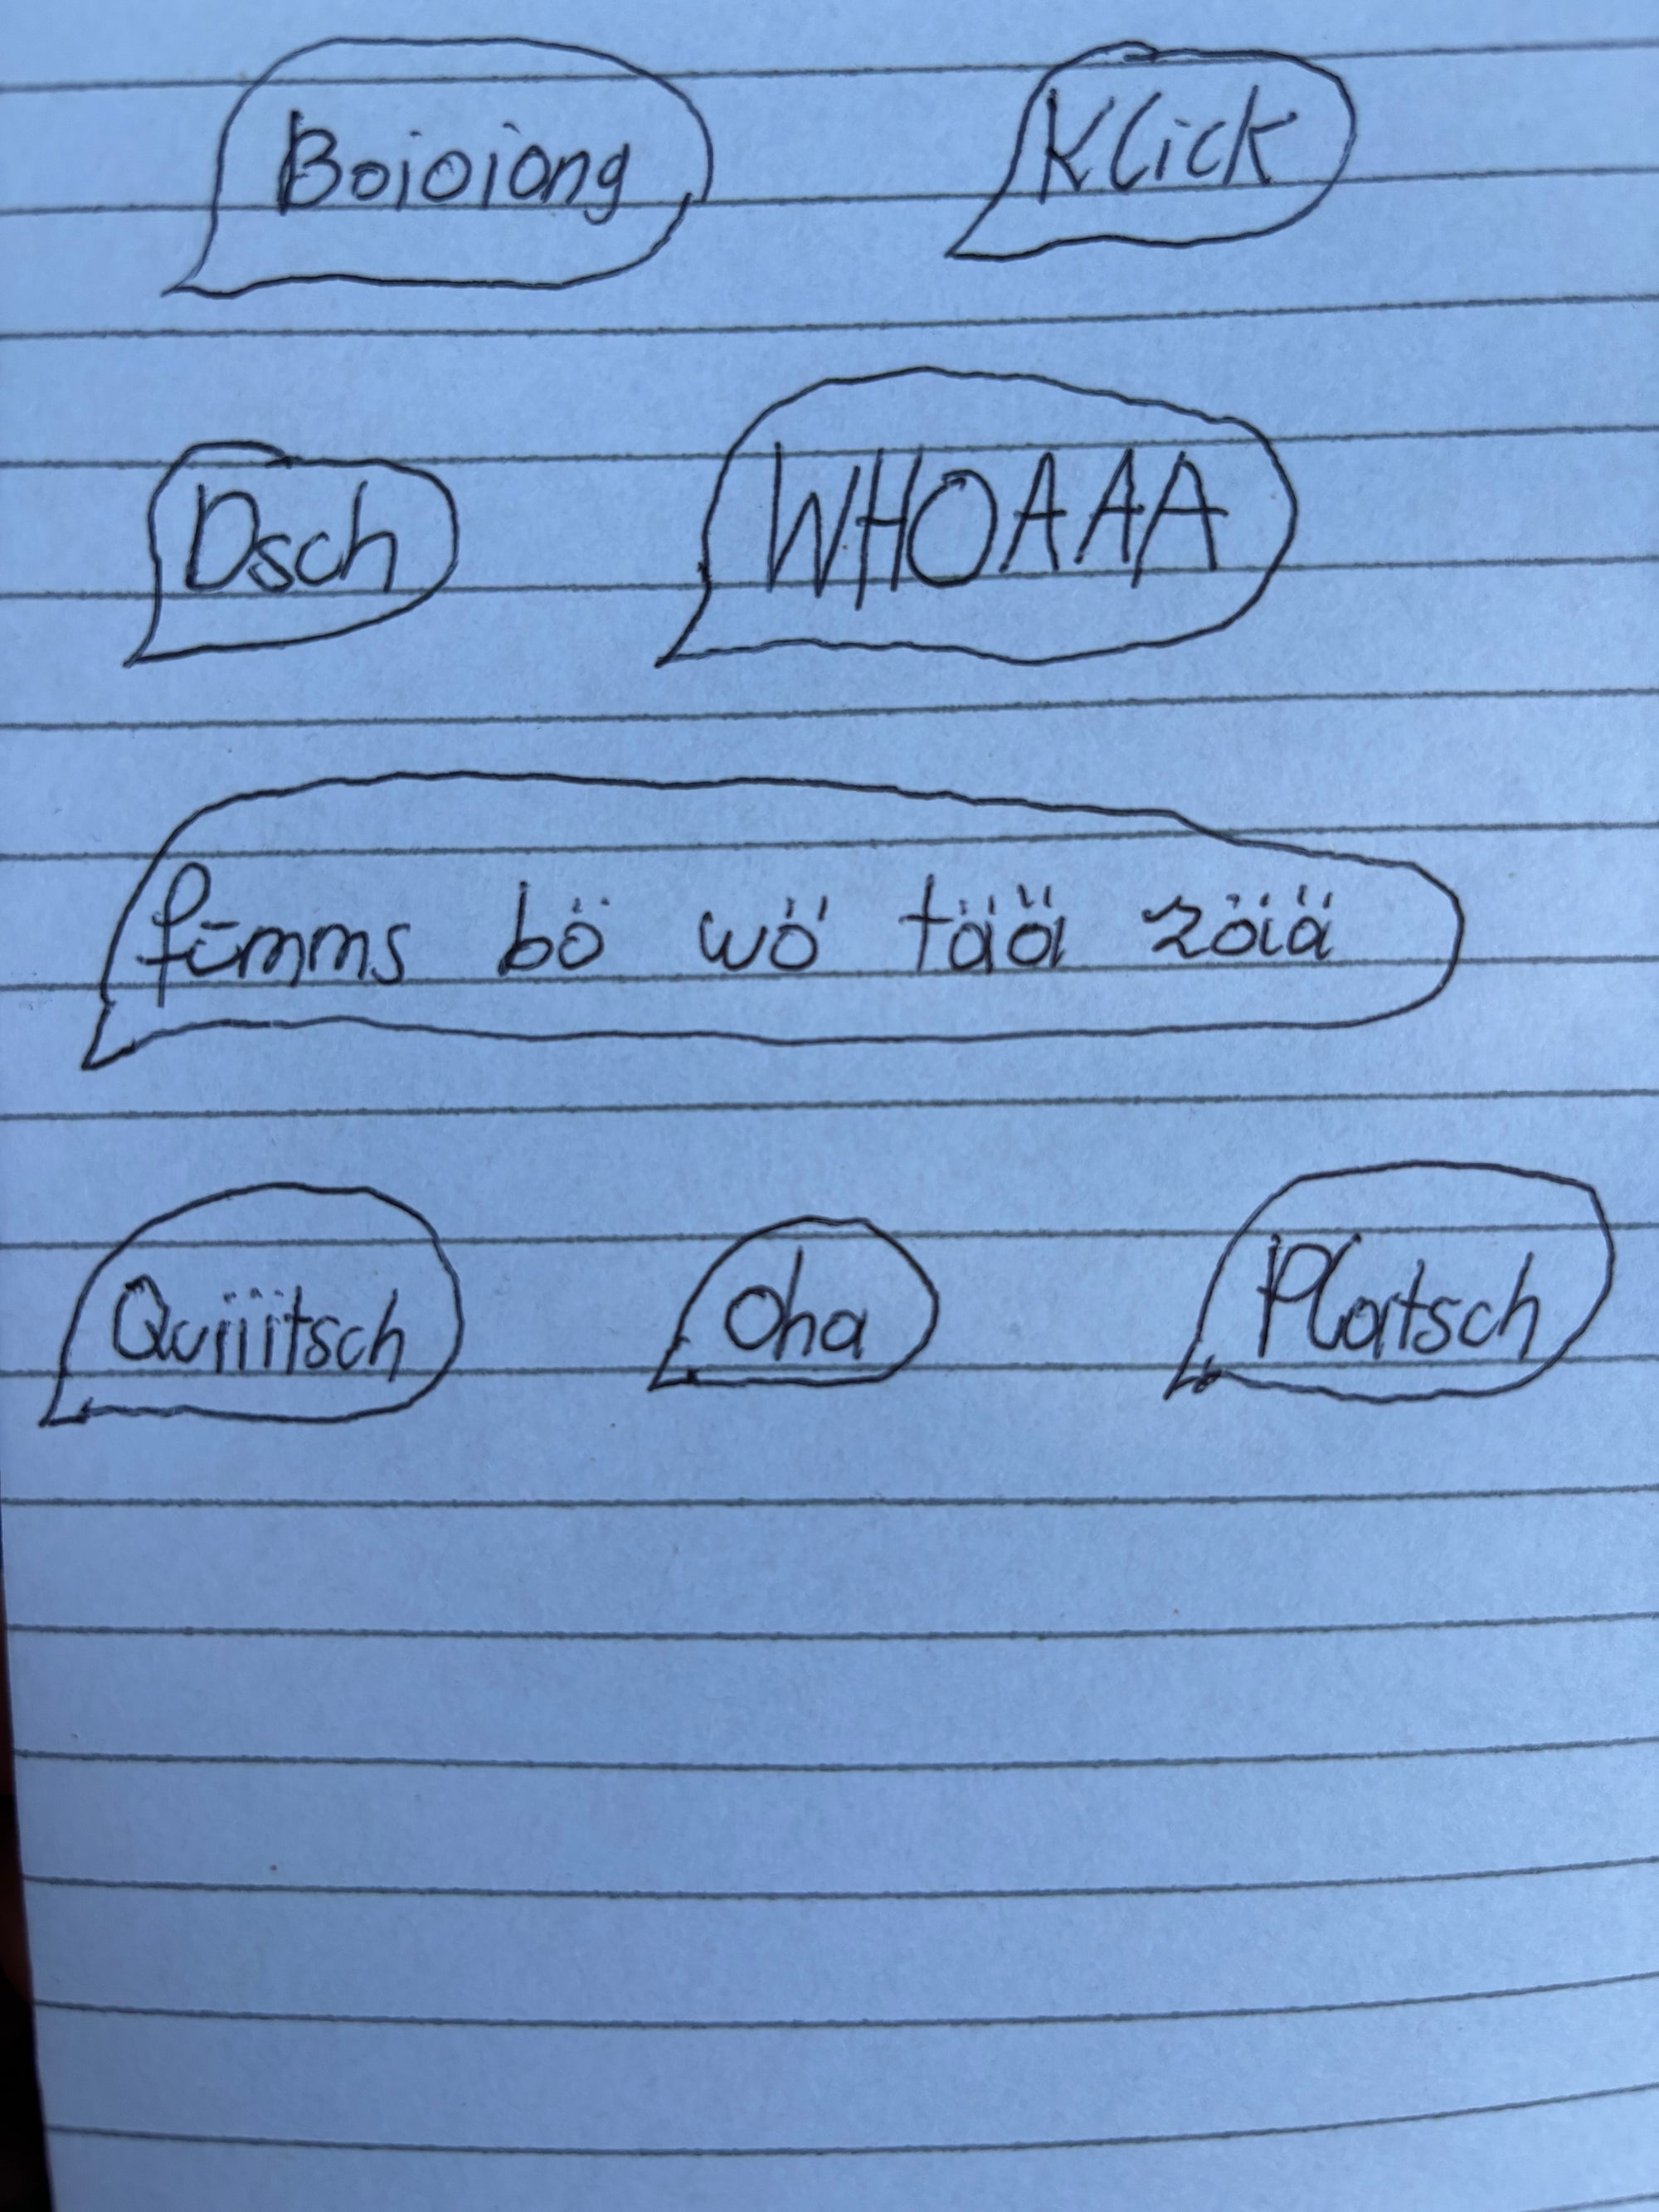 Boioiong Klick
Dsch WHOAAA
fümms bö wö tää zöiä
Quiiitsch Oha Platsch